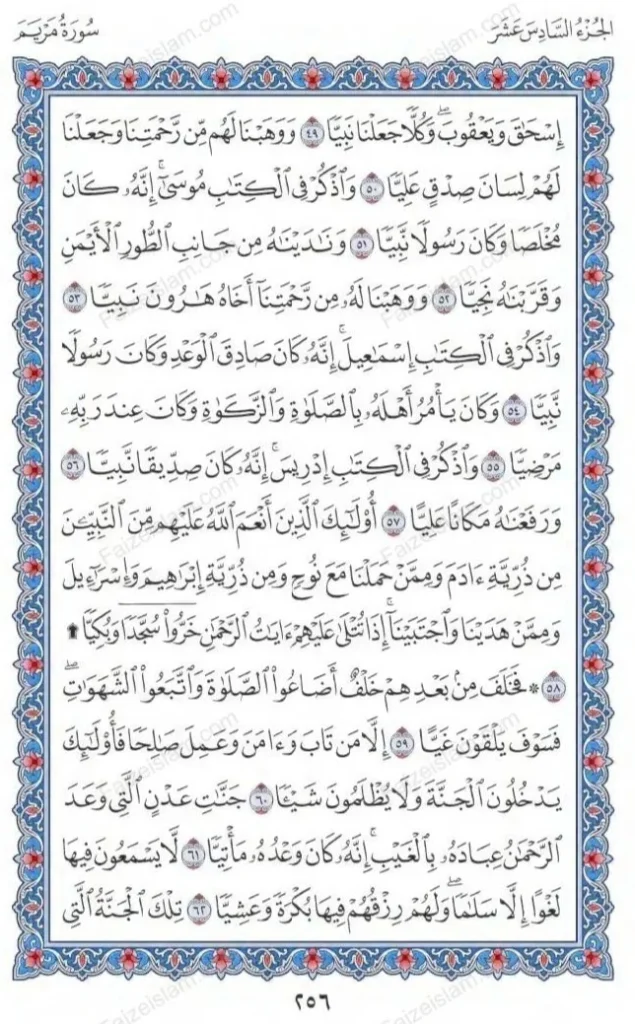 الجزء السادس عشر
سورة مريم
إِسْحَٰقَ وَيَعْقُوبَۖ وَكُلًّا جَعَلْنَا نَبِيًّا ٤٩ وَوَهَبْنَا لَهُم مِّن رَّحْمَتِنَا وَجَعَلْنَا
لَهُمْ لِسَانَ صِدْقٍ عَلِيًّا ٥٠ وَٱذْكُرْ فِى ٱلْكِتَٰبِ مُوسَىٰٓۚ إِنَّهُۥ كَانَ
مُخْلَصًا وَكَانَ رَسُولًا نَّبِيًّا ٥١ وَنَٰدَيْنَٰهُ مِن جَانِبِ ٱلطُّورِ ٱلْأَيْمَنِ
وَقَرَّبْنَٰهُ نَجِيًّا ٥٢ وَوَهَبْنَا لَهُۥ مِن رَّحْمَتِنَآ أَخَاهُ هَٰرُونَ نَبِيًّا ٥٣
وَٱذْكُرْ فِى ٱلْكِتَٰبِ إِسْمَٰعِيلَۚ إِنَّهُۥ كَانَ صَادِقَ ٱلْوَعْدِ وَكَانَ رَسُولًا
نَّبِيًّا ٥٤ وَكَانَ يَأْمُرُ أَهْلَهُۥ بِٱلصَّلَوٰةِ وَٱلزَّكَوٰةِ وَكَانَ عِندَ رَبِّهِۦ
مَرْضِيًّا ٥٥ وَٱذْكُرْ فِى ٱلْكِتَٰبِ إِدْرِيسَۚ إِنَّهُۥ كَانَ صِدِّيقًا نَّبِيًّا ٥٦
وَرَفَعْنَٰهُ مَكَانًا عَلِيًّا ٥٧ أُو۟لَٰٓئِكَ ٱلَّذِينَ أَنْعَمَ ٱللَّهُ عَلَيْهِم مِّنَ ٱلنَّبِيِّۦنَ
مِن ذُرِّيَّةِ ءَادَمَ وَمِمَّنْ حَمَلْنَا مَعَ نُوحٍ وَمِن ذُرِّيَّةِ إِبْرَٰهِيمَ وَإِسْرَٰٓءِيلَ
وَمِمَّنْ هَدَيْنَا وَٱجْتَبَيْنَآۚ إِذَا تُتْلَىٰ عَلَيْهِمْ ءَايَٰتُ ٱلرَّحْمَٰنِ خَرُّوا۟ سُجَّدًا وَبُكِيًّا ۩
٥٨ ۞ فَخَلَفَ مِنۢ بَعْدِهِمْ خَلْفٌ أَضَاعُوا۟ ٱلصَّلَوٰةَ وَٱتَّبَعُوا۟ ٱلشَّهَوَٰتِۖ
فَسَوْفَ يَلْقَوْنَ غَيًّا ٥٩ إِلَّا مَن تَابَ وَءَامَنَ وَعَمِلَ صَٰلِحًا فَأُو۟لَٰٓئِكَ
يَدْخُلُونَ ٱلْجَنَّةَ وَلَا يُظْلَمُونَ شَيْـًٔا ٦٠ جَنَّٰتِ عَدْنٍ ٱلَّتِى وَعَدَ
ٱلرَّحْمَٰنُ عِبَادَهُۥ بِٱلْغَيْبِۚ إِنَّهُۥ كَانَ وَعْدُهُۥ مَأْتِيًّا ٦١ لَّا يَسْمَعُونَ فِيهَا
لَغْوًا إِلَّا سَلَٰمًاۖ وَلَهُمْ رِزْقُهُمْ فِيهَا بُكْرَةً وَعَشِيًّا ٦٢ تِلْكَ ٱلْجَنَّةُ ٱلَّتِى
٢٥٦
Faizeislam.com